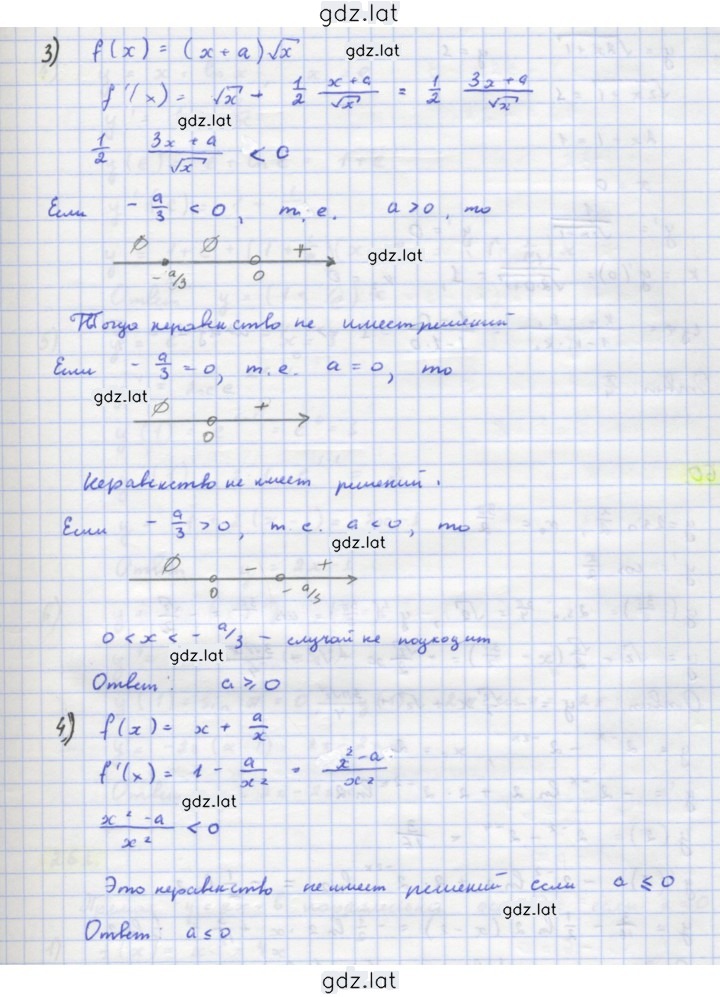 gdz.lat
3) f(x) = (x+a)√x gdz.lat
f'(x) = √x + 1/2 (x+a)/√x = 1/2 (3x+a)/√x
gdz.lat
1/2 (3x+a)/√x < 0
Если - a/3 < 0, т.е. a > 0, то
∅ ∅ + gdz.lat
- a/3 0
Тогда неравенство не имеет решений
Если - a/3 = 0, т.е. a = 0, то
gdz.lat
∅ +
0
Неравенство не имеет решений.
Если - a/3 > 0, т.е. a < 0, то
gdz.lat
∅ - +
0 - a/3
0 < x < - a/3 - случай не подходит
gdz.lat
Ответ: a ⩾ 0
4) f(x) = x + a/x
f'(x) = 1 - a/x² = (x²-a)/x²
gdz.lat
(x²-a)/x² < 0
Это неравенство не имеет решений если a ⩽ 0
gdz.lat
Ответ: a ≤ 0
gdz.lat